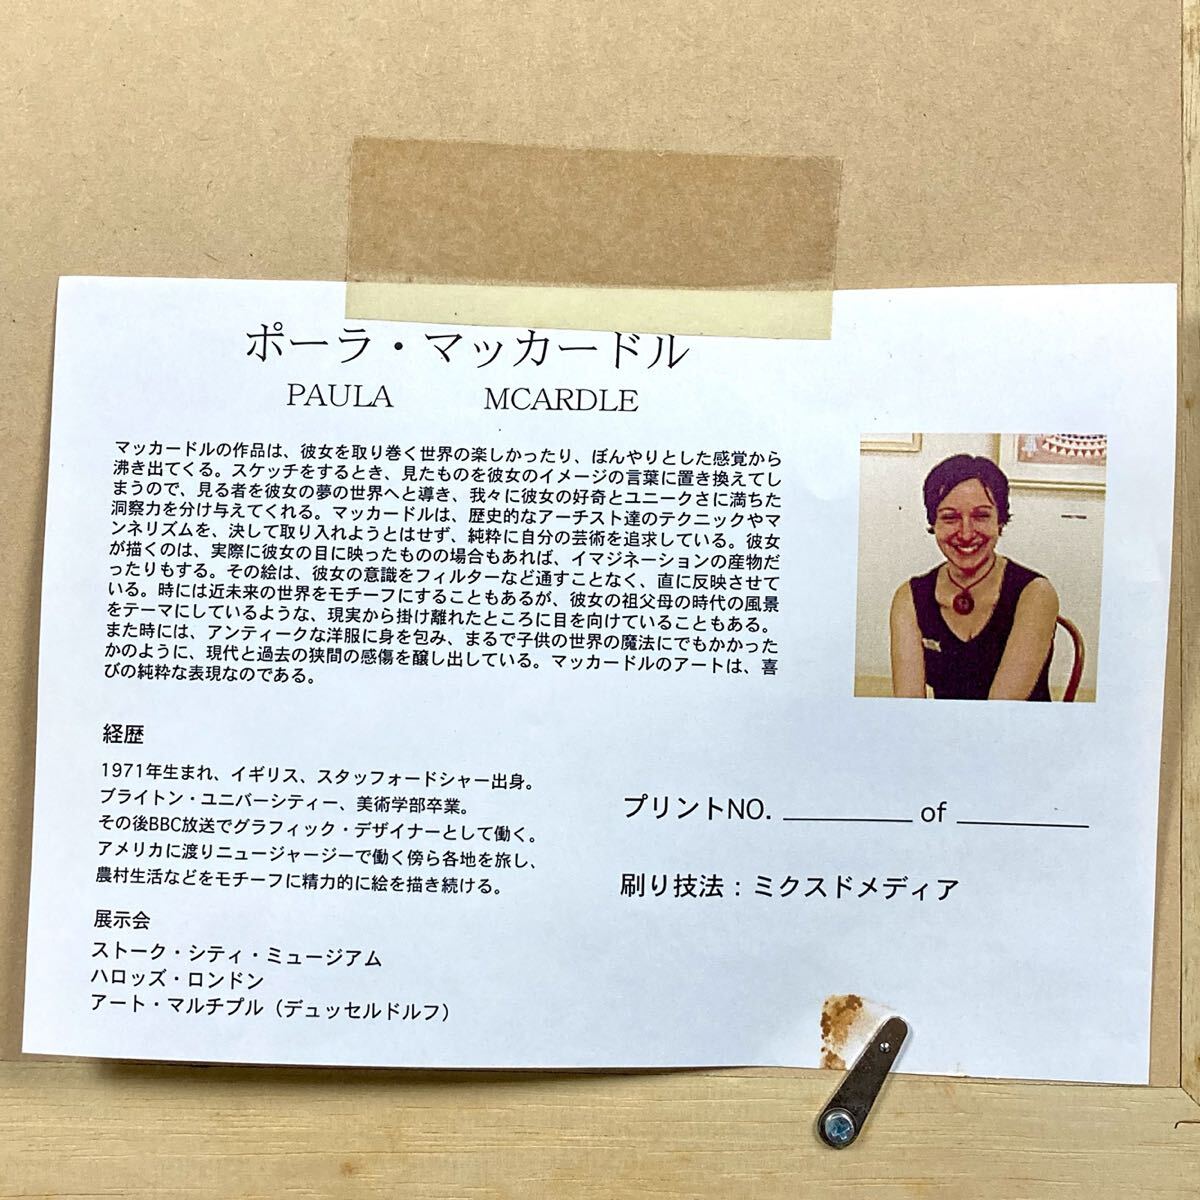 ポーラ・マッカードル
PAULA MCARDLE
マッカードルの作品は、彼女を取り巻く世界の楽しかったり、ぼんやりとした感覚から
沸き出てくる。スケッチをするとき、見たものを彼女のイメージの言葉に置き換えてし
まうので、見る者を彼女の夢の世界へと導き、我々に彼女の好奇とユニークさに満ちた
洞察力を分け与えてくれる。マッカードルは、歴史的なアーチスト達のテクニックやマ
ンネリズムを、決して取り入れようとはせず、純粋に自分の芸術を追求している。彼女
が描くのは、実際に彼女の目に映ったものの場合もあれば、イマジネーションの産物だ
ったりもする。その絵は、彼女の意識をフィルターなど通すことなく、直に反映させて
いる。時には近未来の世界をモチーフにすることもあるが、彼女の祖父母の時代の風景
をテーマにしているような、現実から掛け離れたところに目を向けていることもある。
また時には、アンティークな洋服に身を包み、まるで子供の世界の魔法にでもかかった
かのように、現代と過去の狭間の感傷を醸し出している。マッカードルのアートは、喜
びの純粋な表現なのである。
経歴
1971年生まれ、イギリス、スタッフォードシャー出身。
ブライトン・ユニバーシティー、美術学部卒業。
その後BBC放送でグラフィック・デザイナーとして働く。
アメリカに渡りニュージャージーで働く傍ら各地を旅し、
農村生活などをモチーフに精力的に絵を描き続ける。
展示会
ストーク・シティ・ミュージアム
ハロッズ・ロンドン
アート・マルチプル（デュッセルドルフ）
プリントNO. ________ of ________
刷り技法：ミクスドメディア